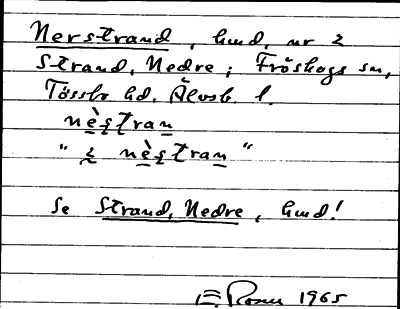 Nerstrand, hmd, nr 2
Strand, Nedre; Fröskogs sn,
Tössbo hd. Älvsb. l.
nèstran
" 2 nèstran "
Se Strand, Nedre, hmd!
1965